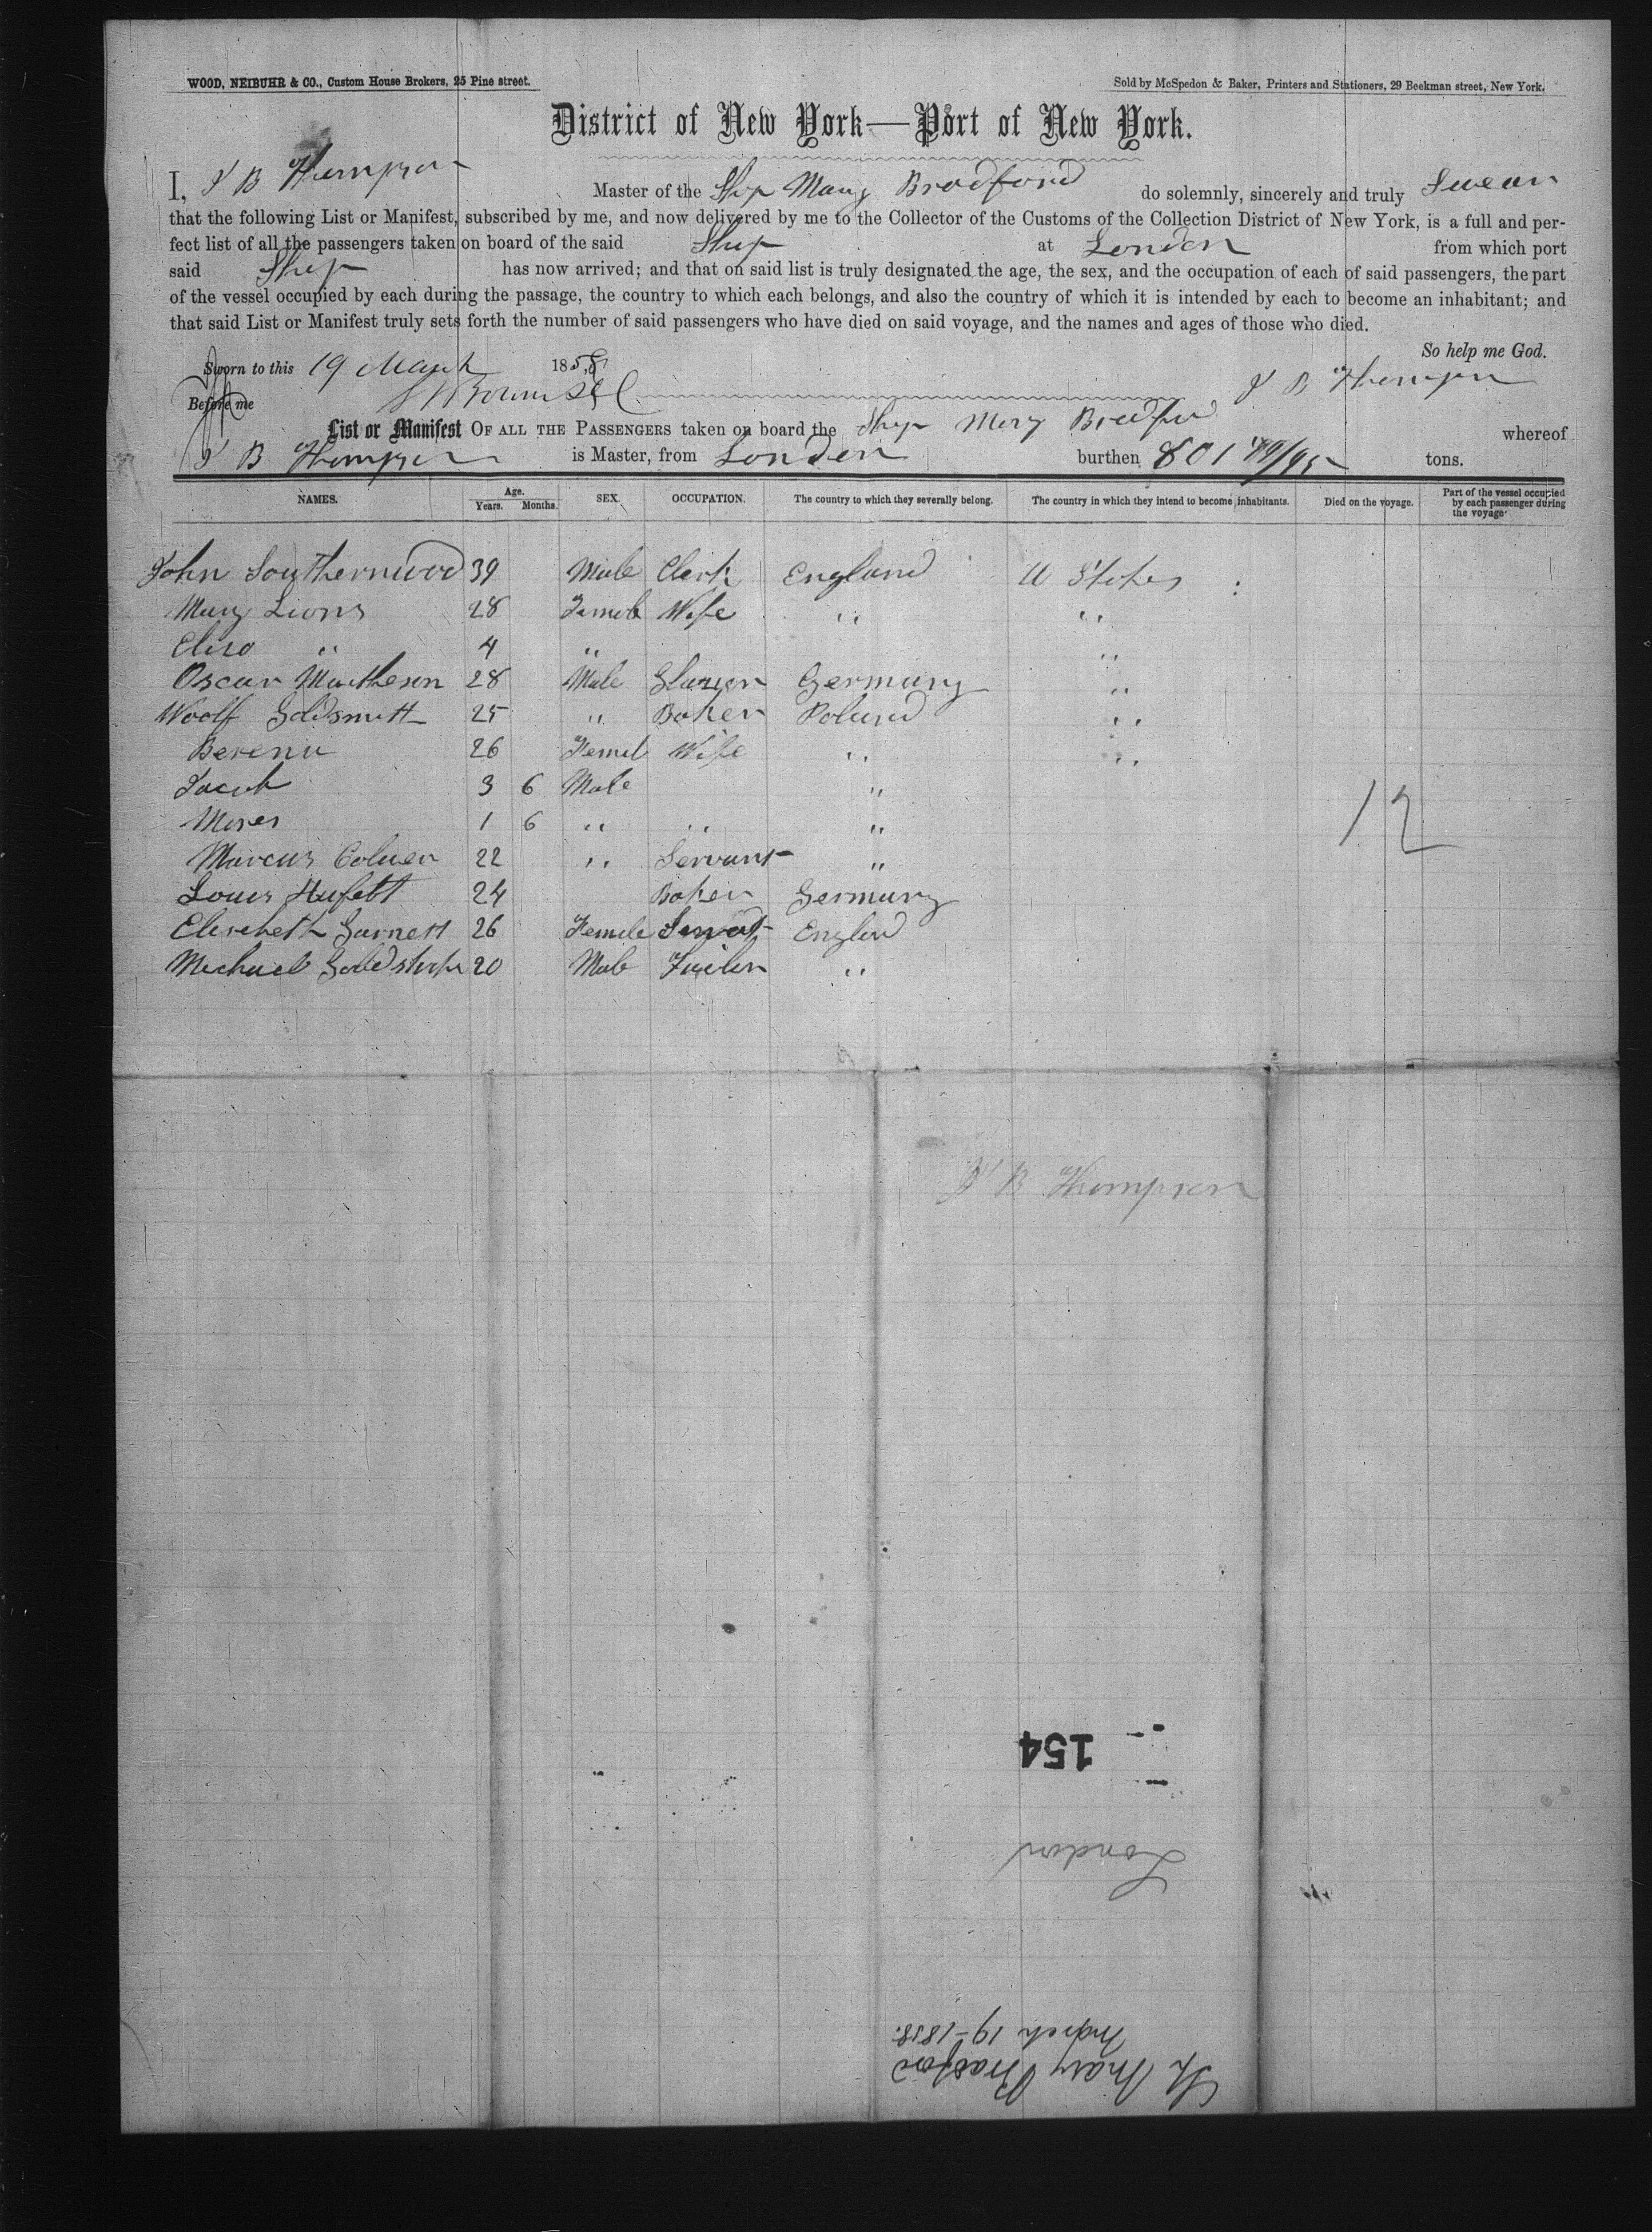 WOOD, NEIBUHR & CO., Custom House Brokers, 25 Pine street. Sold by McSpedon & Baker, Printers and Stationers, 29 Beekman street, New York.
District of New York—Port of New York.
I, J B Thompson Master of the Ship Mary Bradford do solemnly, sincerely and truly Swear
that the following List or Manifest, subscribed by me, and now delivered by me to the Collector of the Customs of the Collection District of New York, is a full and per-
fect list of all the passengers taken on board of the said Ship at London from which port
said Ship has now arrived; and that on said list is truly designated the age, the sex, and the occupation of each of said passengers, the part
of the vessel occupied by each during the passage, the country to which each belongs, and also the country of which it is intended by each to become an inhabitant; and
that said List or Manifest truly sets forth the number of said passengers who have died on said voyage, and the names and ages of those who died.
So help me God.
Sworn to this 19 March 1858 J B Thompson
Before me
List or Manifest OF ALL THE PASSENGERS taken on board the Ship Mary Bradford whereof
J B Thompson is Master, from London burthen 801 79/95 tons.
NAMES. Age. Years. Months. SEX. OCCUPATION. The country to which they severally belong. The country in which they intend to become inhabitants. Died on the voyage. Part of the vessel occupied by each passenger during the voyage.
John Southernwood 39 Male Clerk England U States
Mary Lions 28 Female Wife " "
Eliza " 4 " "
Oscar Matheson 28 Male Glazier Germany "
Woolf Goldsmith 25 " Baker Poland "
Berena 26 Femal Wife " "
Jacob 3 6 Male "
Moses 1 6 " " "
Marcus 22 " Servant "
Louis 24 Baker Germany
Elizebeth Garnett 26 Female Servat England
Michael 20 Male Tailor "
12
J B Thompson
154
London
Sh Mary Bradford
March 19-1858.